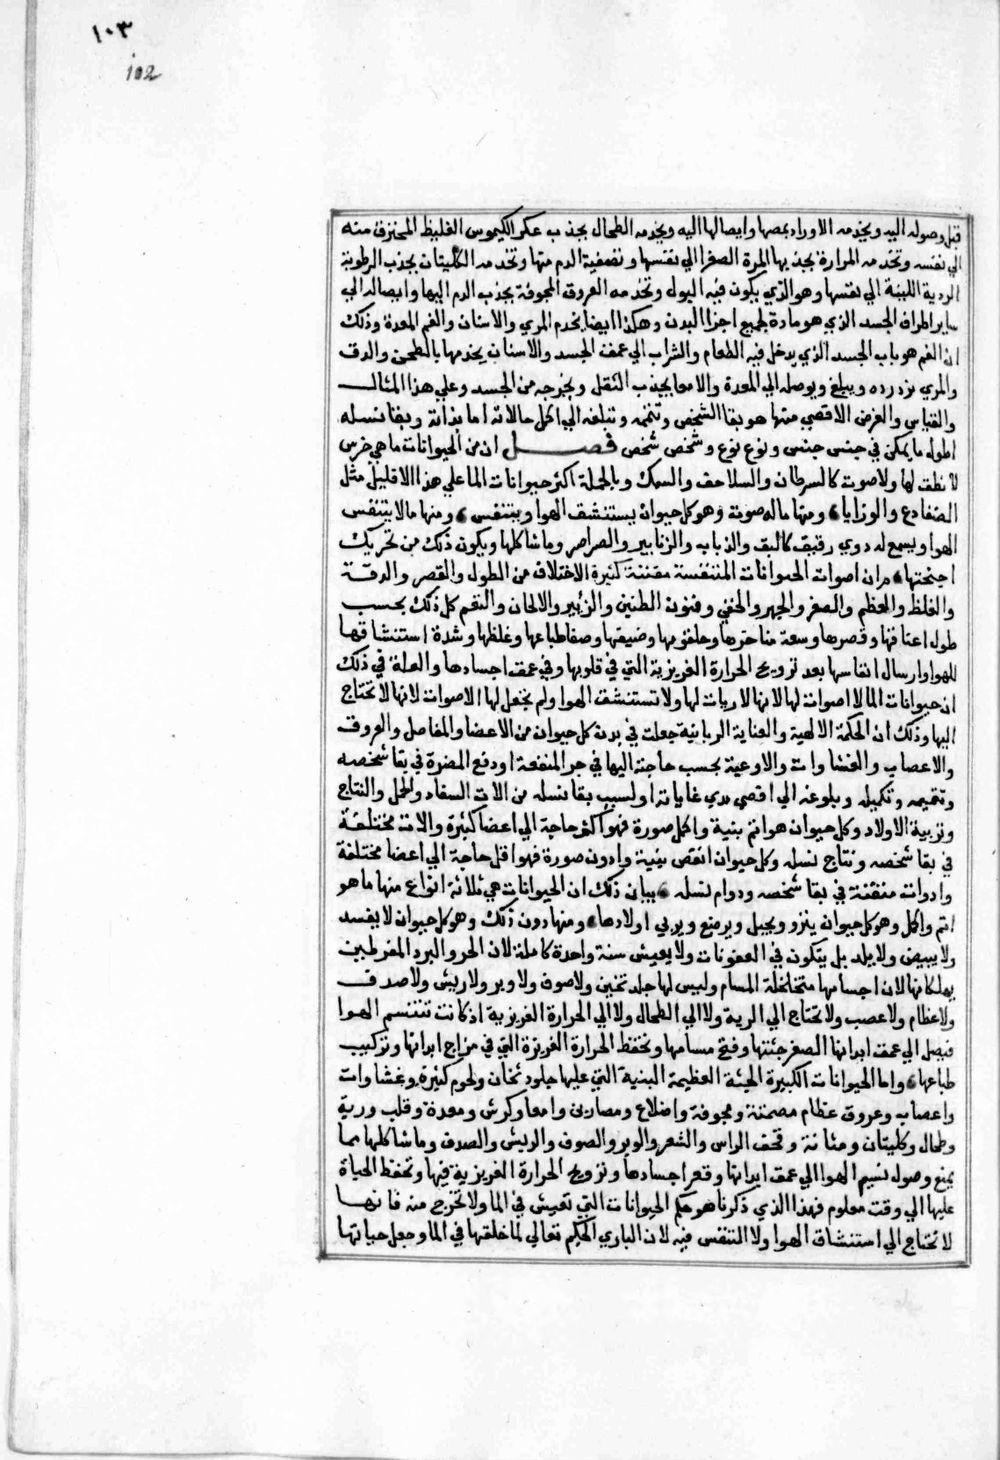 ١٠٣
102
قبل وصوله اليه ويخدمه الاوراد بمصها وايصالها اليه ويخدمه الطحال بجذب عكر الكيموس الغليظ المحترق منه
الي نفسه وتخدمه المرارة بجذبها المرة الصفرا الي نفسها وتصفية الدم منها وتخدمه الكليتان بجذب الرطوبة
الردية اللينة الي نفسها وهو الذي يكون فيه البول وتخدمه العروق المجوفة بجذب الدم اليها وايصاله الي
ساير اطراف الجسد الذي هو مادة لجميع اجزا البدن وهكذا ايضا يخدم المري والاسنان والفم المعدة وذلك
ان الفم هو باب الجسد الذي يدخل فيه الطعام والشراب الي عمق الجسد والاسنان يخدمها بالطحن والدق
والمري يزدرده ويبلغ ويوصله الي المعدة والامعا يجذب الثقل ويخرجه من الجسد وعلي هذا المثال
والقياس والغرض الاقصي منها هو بقا الشخص وتتممه وتبلغه الي اكمل حالاته اما بذاته وبقا نسله
اطول ما يمكن في جنس جنس ونوع نوع وشخص شخص فصل ان من الحيوانات ما هي خرس
لا نطق لها ولا صوت كالسرطان والسلاحف والسمك وبالجملة اكثر حيوانات الما علي هذا الا قليل مثل
الضفادع والوزايا ومنها ماله صوت وهو كل حيوان يستنشق الهوا ويتنفس ومنها مالا يتنفس
الهوا ويسمع له دوي رقيق كالبق والذباب والزنابير والصراصر وما شاكلها ويكون ذلك من تحريك
اجنحتها مران اصوات الحيوانات المتنفسة مفننة كثيرة الاختلاف من الطول والقصر والدقة
والغلظ والعظم والصغر والجهر والخفي وفنون الطنين والزئير والالحان والنغم كل ذلك بحسب
طول اعناقها وقصرها وسعة مناخرها وحلقومها وضيقها وصفا طباعها وغلظها وشدة استنشاقها
للهوا وارسال انفاسها بعد ترويح الحرارة الغريزية التي في قلوبها وفي عمق اجسادها والعلة في ذلك
ان حيوانات الما لا اصوات لها لانها لا ريات لها ولا تستنشق الهوا ولم يجعل لها الاصوات لانها لا تحتاج
اليها وذلك ان الحكمة الالهية والعناية الربانية جعلت في بدن كل حيوان من الاعضا والمفاصل والعروق
والاعصاب والغشاوات والاوعية بحسب حاجته اليها في جر المنفعة او دفع المضرة في بقا شخصه
وتتميمه وتكميله وبلوغه الي اقصي مدي غاياته او لسبب بقا نسله من الات السفاد والحبل والنتاج
وتربية الاولاد وكل حيوان هو اتم بنية واكمل صورة فهو اكثر حاجة الي اعضا كثيرة والات مختلفة
في بقا شخصه ونتاج نسله وكل حيوان انقص بنية وادون صورة فهو اقل حاجة الي اعضا مختلفة
وادوات متقنة في بقا شخصه ودوام نسله بيان ذلك ان الحيوانات هي ثلاثة انواع منها ما هو
اتم واكمل وهو كل حيوان ينزو ويحبل ويرضع ويربي اولادها ومنها دون ذلك وهو كل حيوان لا يفسد
ولا يبيض ولا يلد بل يتكون في العفونات ولا يعيش سنة واحدة كاملة لان الحر والبرد المفرطين
يهلكانها لان اجسامها متخلخلة المسام وليس لها جلد ثخين ولا صوف ولا وبر ولا ريش ولا صدف
ولا عظام ولا عصب ولا تحتاج الي الرية ولا الي الطحال ولا الي الحرارة الغريزية اذ كانت تتنسم الهوا
فيصل الي عمق ابدانها الصغر جثتها وفتح مسامها وتحفظ الحرارة الغريزة التي في مزاج ابدانها وتركيب
طباعها واما الحيوانات الكبيرة الجثة العظيمة البنية التي عليها جلود ثخان ولحوم كثيرة وغشاوات
واعصاب وعروق عظام مصمتة ومجوفة واضلاع ومصارين وامعا وكرش ومعدة وقلب ورية
وطحال وكليتان ومثانة وقحف الراس والشعر والوبر والصوف والريش والصدف وما شاكلها مما
يمنع وصول نسيم الهوا الي عمق ابدانها وقعر اجسادها وترويح الحرارة الغريزية فيها وتحفظ الحياة
عليها الي وقت معلوم فهذا الذي ذكرناه هو حكم الحيوانات التي تعيش في الما ولا تخرج منه فانها
لا تحتاج الي استنشاق الهوا ولا التنفس فيه لان الباري الحكيم تعالي لما خلقها في الما وجعل حياتها